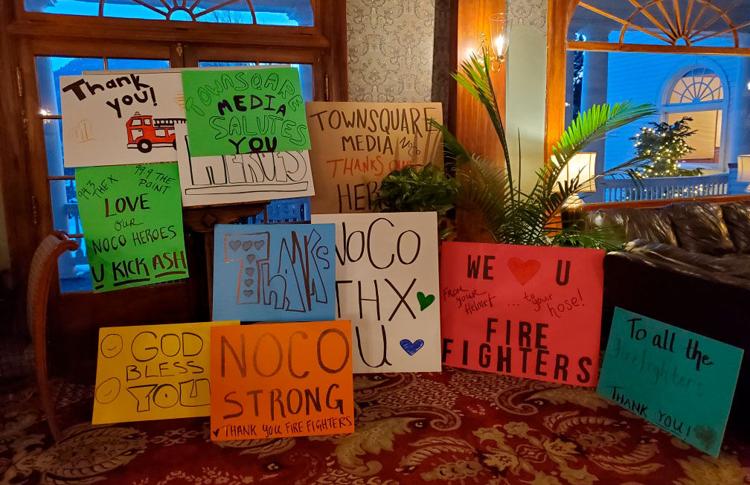 Thank
you!
TOWNSQARE
MEDIA
SALUTES
YOU
HEROES
TOWNSQUARE
MEDIA
THANKS OUR
HERO
94.3 THE X
99.9 THE
POINT
LOVE
OUR
NOCO HEROES
U KICK ASH
THANKS
NOCO
THX
U
WE U
From your
Helmet
... to your
hose!
FIRE
FIGHTERS
GOD
BLESS
YOU
NOCO
STRONG
THANK YOU FIRE FIGHTERS
To all the
firefighters
THANK YOU!